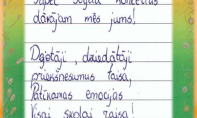 Tāpēc šogad koncertus
dārājam mēs jums!
Dejotāji, dziedātāji
priekšnesumus taisa,
Patīkamas emocijas
Visai skolai raisa!